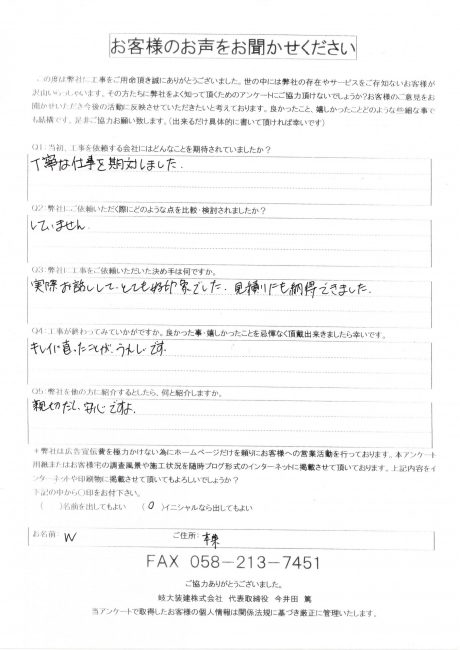 お客様のお声をお聞かせください
この度は弊社に工事をご用命頂き誠にありがとうございました。世の中には弊社の存在やサービスをご存知ないお客様が
沢山いらっしゃいます。その方たちに弊社をよく知って頂くためのアンケートにご協力頂けないでしょうか?お客様のご意見をお
聞かせいただき今後の活動に反映させていただきたいと考えております。良かったこと、嬉しかったことどのような些細な事で
も結構です。是非ご協力お願い致します。(出来るだけ具体的に書いて頂ければ幸いです)
Q1:当初、工事を依頼する会社にはどんなことを期待されていましたか?
丁寧な仕事を期対しました.
Q2:弊社にご依頼いただく際にどのような点を比較・検討されましたか?
していません.
Q3:弊社に工事をご依頼いただいた決め手は何ですか。
実際お話ししてとても好印象でした. 見積りにも納得できました.
Q4:工事が終わってみていかがですか。良かった事・嬉しかったことを忌憚なく頂戴出来きましたら幸いです。
キレイに直ったことが、うれしいです.
Q5:弊社を他の方に紹介するとしたら、何と紹介しますか。
親切だし、安心ですよ.
+弊社は広告宣伝費を極力かけない為にホームページだけを頼りにお客様への営業活動を行っております。本アンケート
用紙またはお客様宅の調査風景や施工状況を随時ブログ形式のインターネットに掲載させて頂いております。上記内容をイ
ンターネットや印刷物に掲載させて頂いてもよろしいでしょうか?
下記の中から〇印をお付下さい。
( )名前を出してもよい (〇)イニシャルなら出してもよい
お名前: W ご住所:
FAX 058-213-7451
ご協力ありがとうございました。
岐大装建株式会社 代表取締役 今井田 篤
当アンケートで取得したお客様の個人情報は関係法規に基づき厳正に管理いたします。